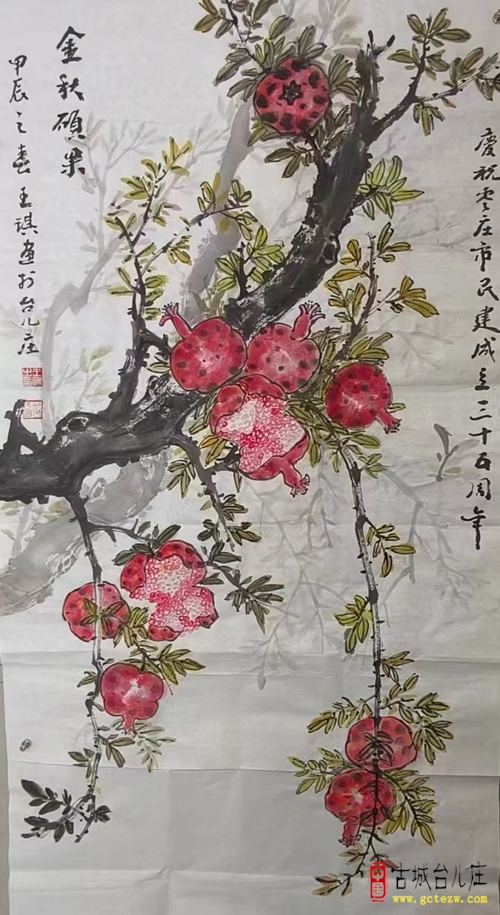 庆祝枣庄市民建成立三十五周年
金秋硕果
甲辰之春王琪画于台儿庄
中国
古城台儿庄
www.gctezw.com